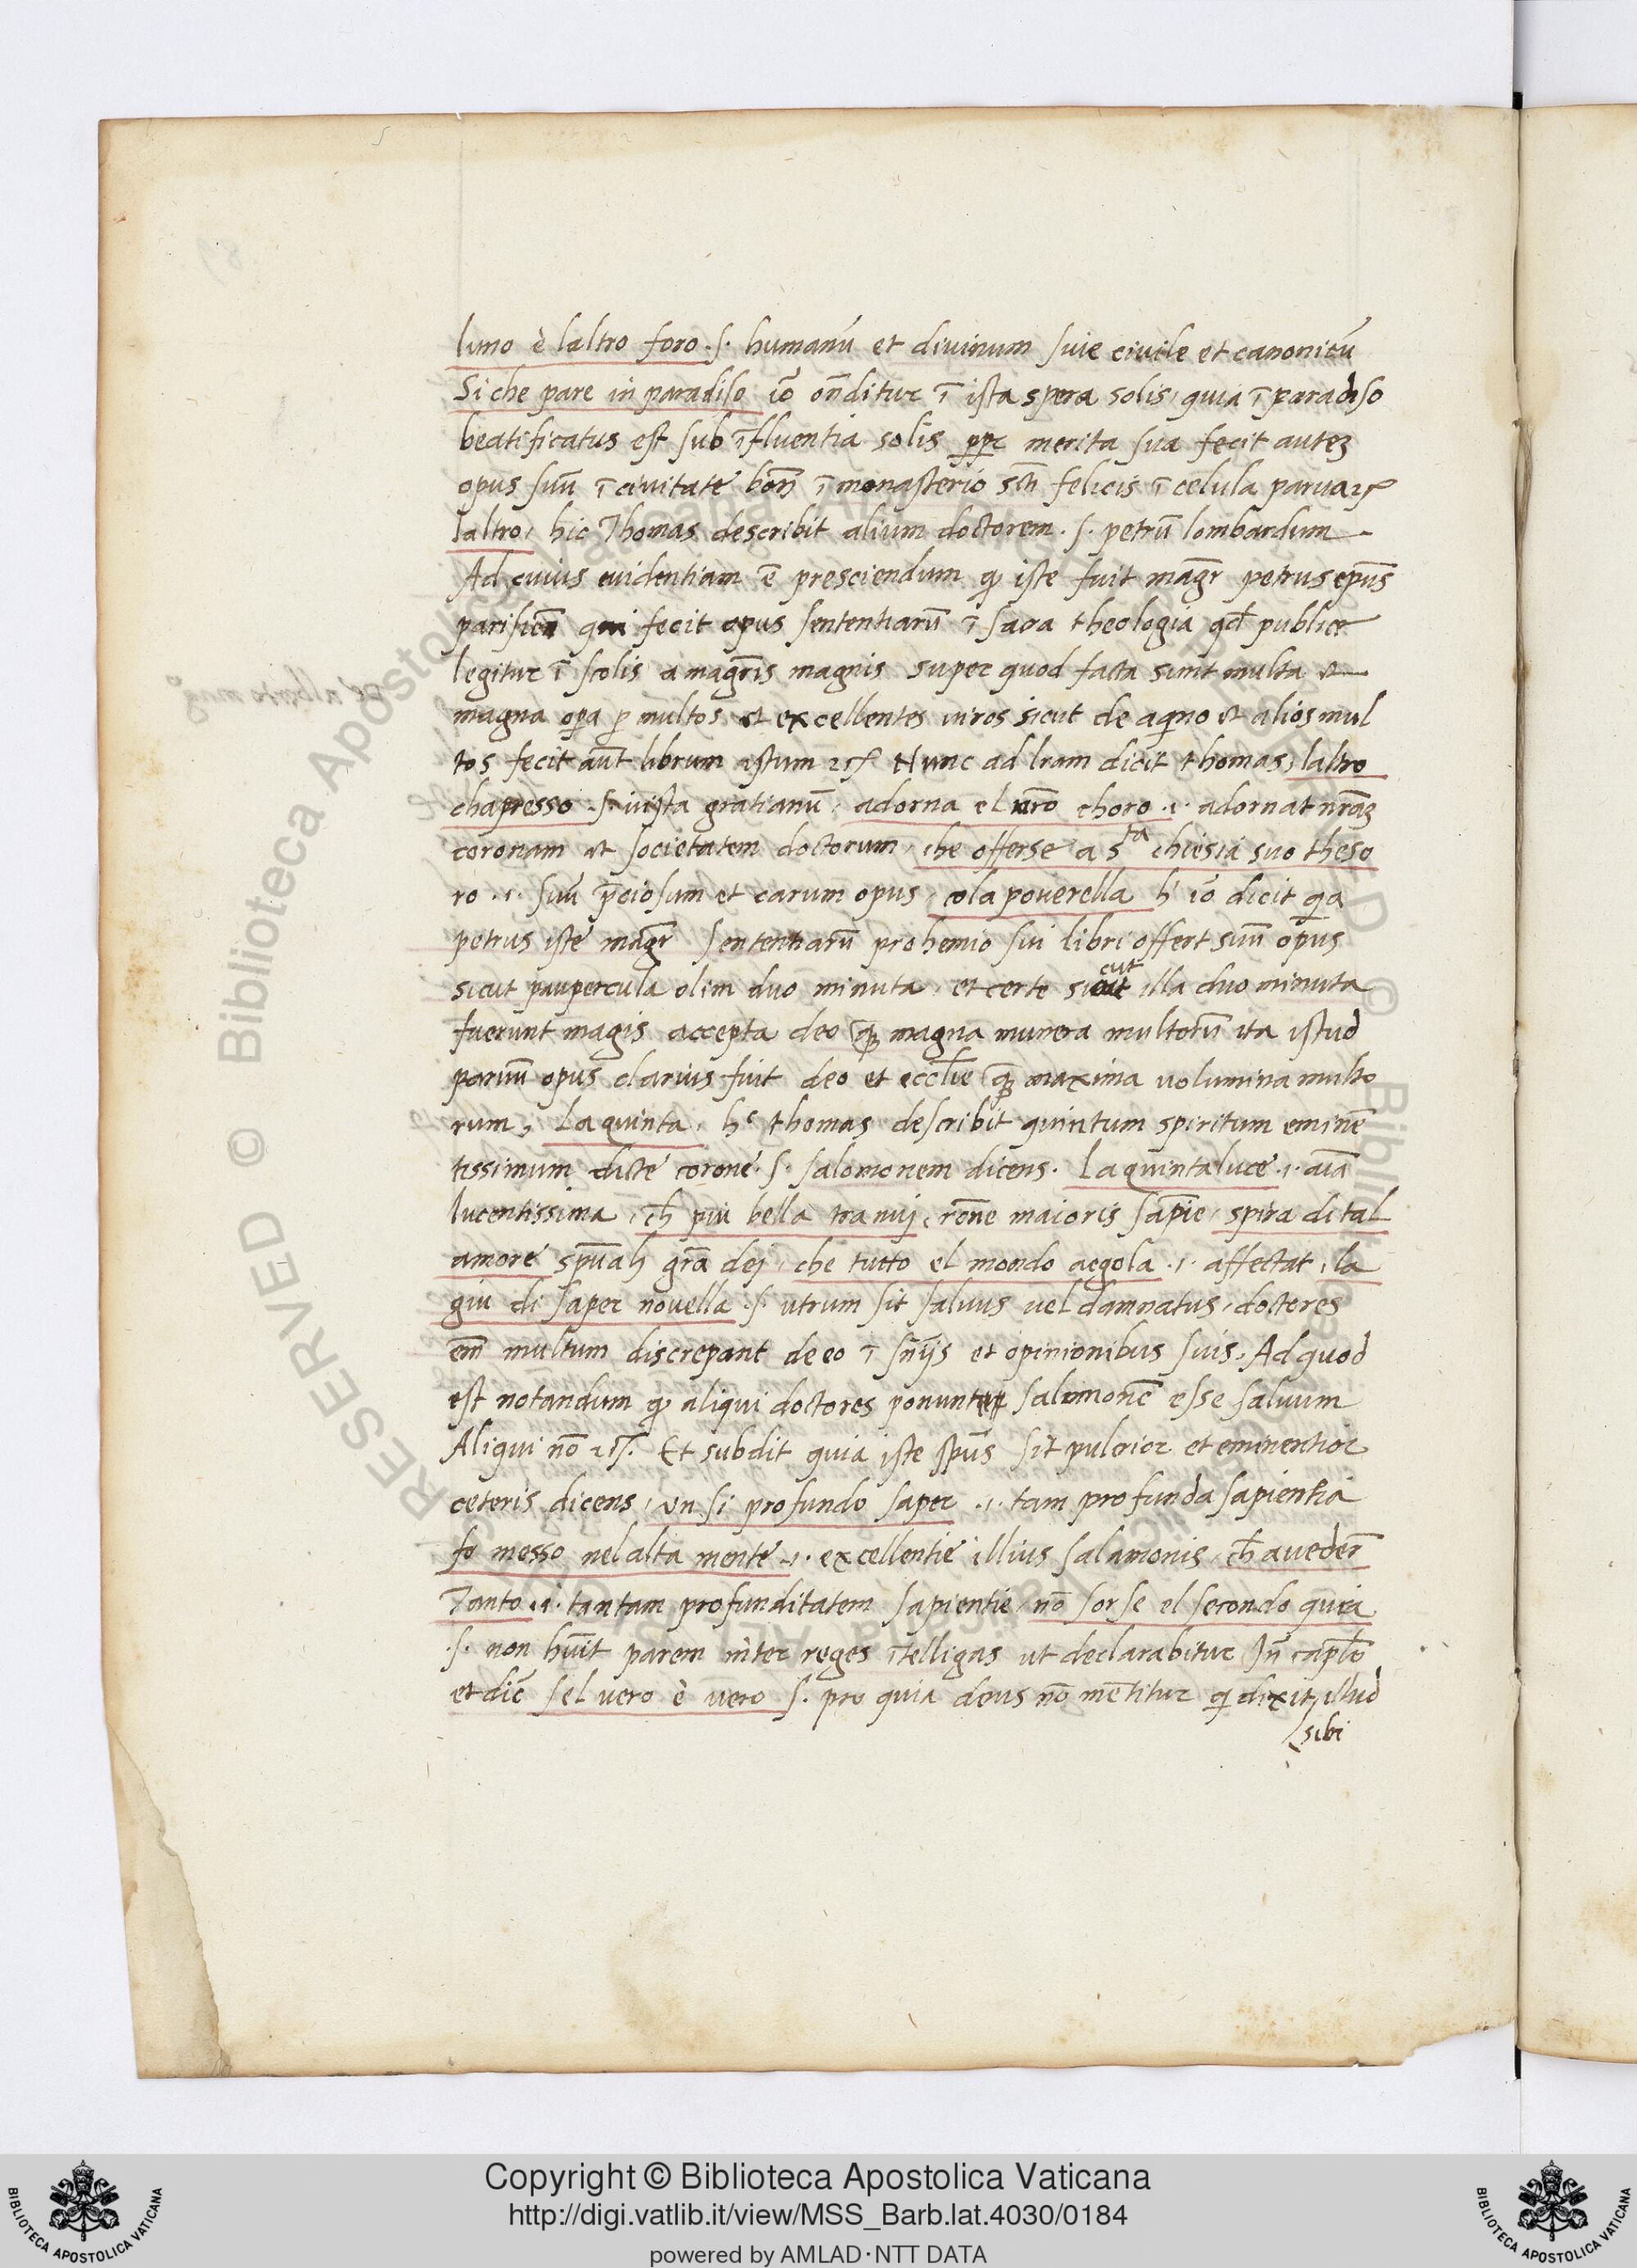 luno è laltro foro .s. humanũ et divinum sive civile et canonicũ
Si che pare in paradiso iõ oñditur ĩ ista spera solis, quia ĩ paradiso
beatificatus est sub ĩfluentia solis merita sua fecit autez
opus suũ ĩ civitate boñ ĩ monasterio felicis ĩ celula parva
laltro, hic Thomas describit alium doctorem .s. petrũ lombardum
Ad cuius evidentiam ẽ presciendum iste fuit mag̃r petrus ep̃us
parisieñ qui fecit opus sententiarũ ĩ sacra theologia qd̃ publice
legitur ĩ scolis a mag̃ris magnis super quod facta sunt multa et
magna op̃a p multos et excellentes viros sicut de aqino et alios mul
tos fecit aũt librum istum Nunc ad lr̃am dicit thomas, laltro
chapresso .s. iuxta gratianũ, adorna el nr̃o choro .i. adornat nr̃az
coronam et societatem doctorum, che offerse a s ta chiesia suo theso
ro .i. suũ p̃ciosum et carum opus, cola poverella h iõ dicit qa
petrus iste mag̃r sententiarũ prohemio sui libri offert suũ opus
sicut paupercula olim duo minuta, et certe sicut illa duo minuta
fuerunt magis accepta deo magna munera multorũ ita istud
parvũ opus clarius fuit deo et eccl̃ie maxima volumina multo
rum, La quinta, hc thomas describit quintum spiritum eminẽ
tissimum dicte corone .s. salomonem dicens. La quinta luce .i. aĩa
lucentissima, ch̃ piu bella tra nuj, rõne maioris sap̃ie, spira di tal
amore gr̃a dej, che tutto el mondo agola .i. affectat, la
giu di saper novella .s. utrum sit salvus vel damnatus, doctores
em̃ multum discrepant de eo ĩ sñijs et opinionibus suis, Ad quod
est notandum aliqui doctores ponunt salomonẽ esse salvum
Aliqui nõ Et subdit quia iste sp̃us sit pulcrior et eminentior
ceteris dicens, un si profundo saper .i. tam profunda sapientia
fo messo nel alta mente .i. excellentie illius salamonis, ch̃ a veder
Tanto .i. tantam profunditatem sapientie, nõ sorse el secondo
.s. non hũit parem inter reges ĩtelligas ut declarabitur capl̃o
et dic̃ sel vero è vero .s. pro quia deus nõ mẽtitur q dixit illud
sibi